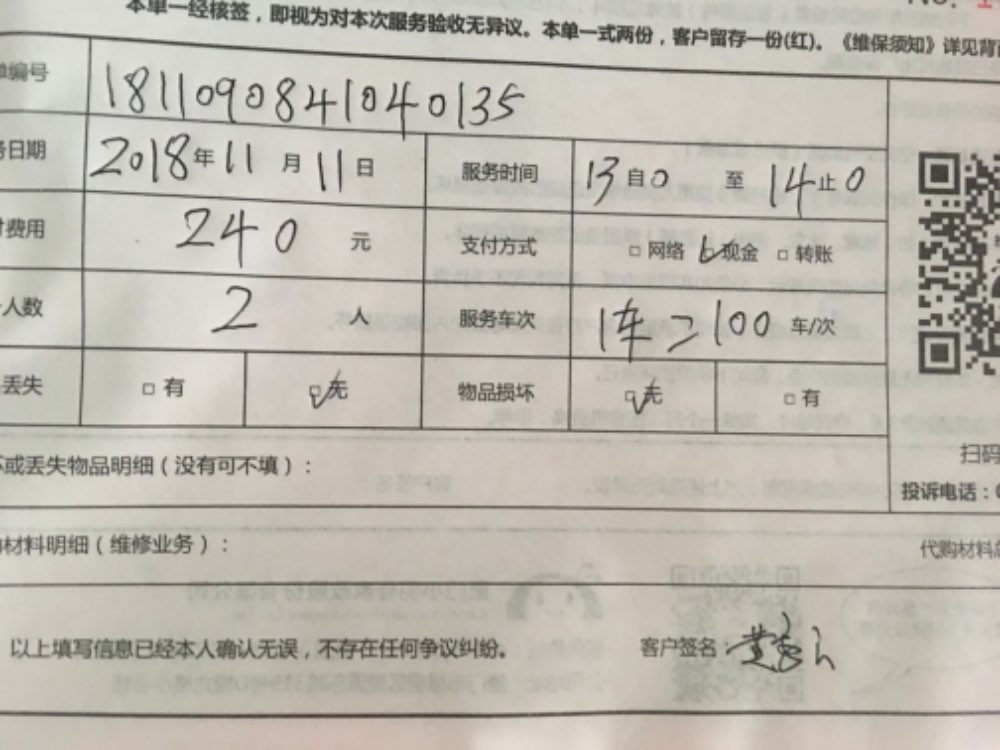 No.
本单一经核签，即视为对本次服务验收无异议。本单一式两份，客户留存一份(红)。《维保须知》详见背
单编号 1811090841040135
务日期 2018年11月11日 服务时间 13自0 至 14止0
付费用 240 元 支付方式 □ 网络 ☑ 现金 □ 转账
人数 2 人 服务车次 1车 100 车/次
丢失 □ 有 ☑ 无 物品损坏 ☑ 无 □ 有
坏或丢失物品明细（没有可不填）：
扫码
投诉电话：0
购材料明细（维修业务）：
代购材料总
以上填写信息已经本人确认无误，不存在任何争议纠纷。 客户签名：